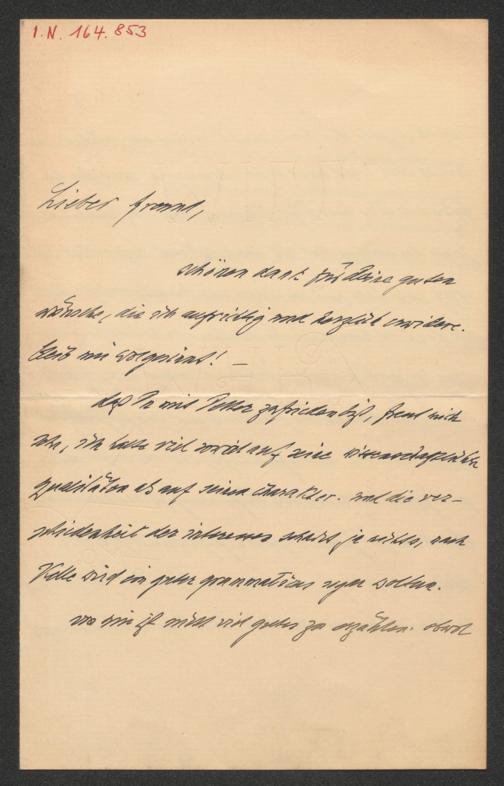 I.N. 164.853
Lieber freund,
schönen dank für Deine guten
wünsche, die ich aufrichtig und herzlich erwidere.
bleib mir wolgesinnt! —
daß Du mit Detter zufrieden bist, freut mich
sehr, ich halte viel sowol auf seine wissenschaftlichen
qualitäten als auf seinen charakter. und die ver-
schiedenheit der interessen schadet ja nichts, nach
Kelle wird ein guter grammaticus sogar wolthun.
von mir ist nicht viel gutes zu erzählen. obwol